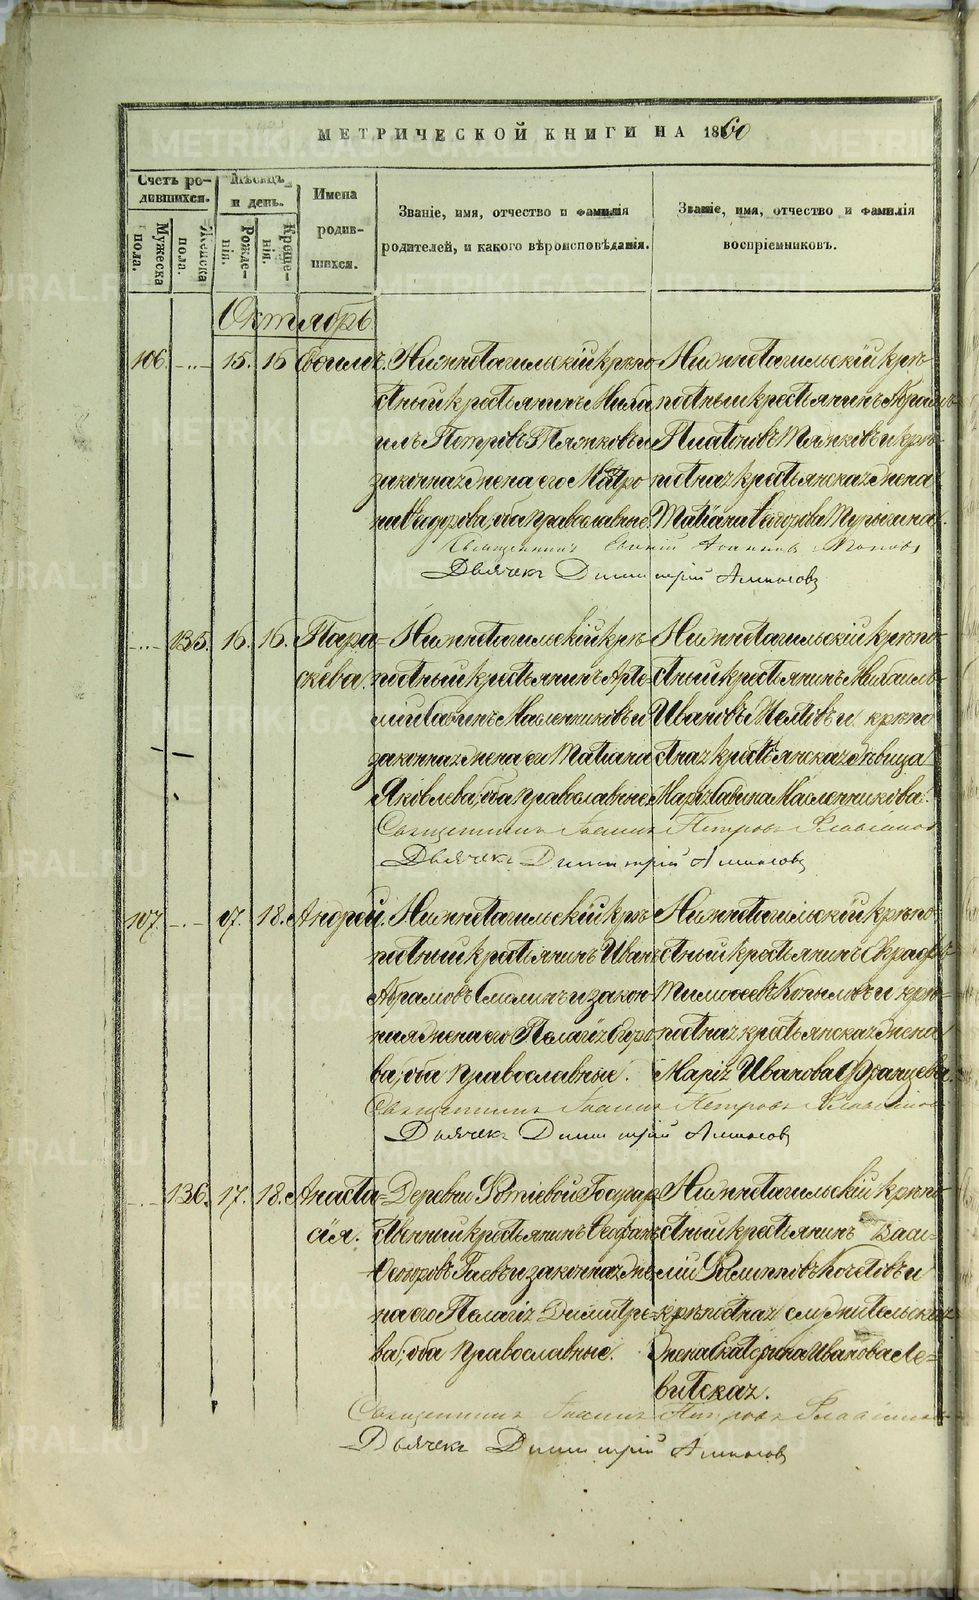 МЕТРИЧЕСКОЙ КНИГИ НА 1860
Счетъ ро-
дившихся.
Мужеска
пола.
Женска
пола.
Мѣсяцъ
и день.
Рожде-
нія.
Креще-
нія.
Имена
родив-
шихся.
Званіе, имя, отчество и фамилія
родителей, и какого вѣроисповѣданія.
Званіе, имя, отчество и фамилія
воспріемниковъ.
Октябрь
106. 15. 16
Нижнетагильскій крѣпо
стный крестьянинъ Миха
илъ Петровъ Пляжковъ и
законная жена его Матро
на Ѳедорова, оба православные.
Нижнетагильскій крѣ
постный крестьянинъ
Платоновъ и крѣ-
постная крестьянская жена
Татіана Егорова
Священникъ Поповъ
Дьячекъ Димитрій
135. 16. 16. Пара-
скева.
Нижнетагильскій крѣ-
постный крестьянинъ Арте-
мій Савинъ Масленниковъ и
законная жена его Татіана
Яковлева, оба православные
Нижнетагильскій крѣпо-
стный крестьянинъ Михаилъ
Ивановъ и крѣпо
стная крестьянская дѣвица
Марія Савина Масленникова.
Священникъ Іоаннъ Петровъ Славнинъ
Дьячекъ Димитрій
107. 17. 18. Андрей.
Нижнетагильскій крѣ-
постный крестьянинъ Иванъ
Абрамовъ Смилинъ и закон-
ная жена его Пелагія Егоро
ва, оба православные.
Нижнетагильскій крѣпо-
стный крестьянинъ
Тимоѳеевъ Копыловъ и крѣ-
постная крестьянская жена
Марія Иванова Францева.
Священникъ Іоаннъ Петровъ
Дьячекъ Димитрій
136. 17. 18. Анаста-
сія.
Деревни Государ-
ственный крестьянинъ
Ѳедоровъ Гаевъ и законная же-
на его Пелагія Димитріе-
ва, оба православные.
Нижнетагильскій крѣпо-
стный крестьянинъ Васи-
лій Филипповъ Кочетовъ и
крѣпостная служительская
жена Екатерина Иванова Ле-
витская.
Священникъ Іоаннъ Петровъ
Дьячекъ Димитрій
METRIKI.GASO-URAL.RU